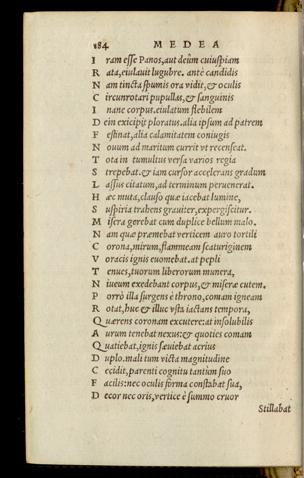 184. MEDEA
I ram esse Panos, aut deûm cuiuspiam
R ata, eiulauit lugubre. antè candidis
N am tincta spumis ora vidit, & oculis
C ircunrotari pupullas, & sanguinis
I nane corpus. eiulatum flebilem
D ein exicipit ploratus. alia ipsum ad patrem
F estinat, alia calamitatem coniugis
N ouum ad maritum currit vt recenseat.
T ota in tumultus versa varios regia
S trepebat. & iam cursor accelerans gradum
L assus citatum, ad terminum peruenerat.
H æc muta, clauso quæ iacebat lumine,
S uspiria trahens grauiter, expergiscitur.
M isera gerebat cum duplice bellum malo.
N am quæ præmebat verticem auro tortili
C orona, mirum, flammeam scaturiginem
V oracis ignis euomebat. at pepli
T enues, tuorum liberorum munera,
N iueum exedebant corpus, & miseræ cutem.
P orrò illa surgens è throno, comam igneam
R otat, huc & illuc vsta iactans tempora,
Q uærens coronam excutere: at insolubilis
A urum tenebat nexus: & quoties comam
Q uatiebat, ignis sæuiebat acrius
D uplo. mali tum victa magnitudine
C ecidit, parenti cognitu tantùm suo
F acilis: nec oculis forma constabat sua,
D ecor nec oris, vertice è summo cruor
Stillabat